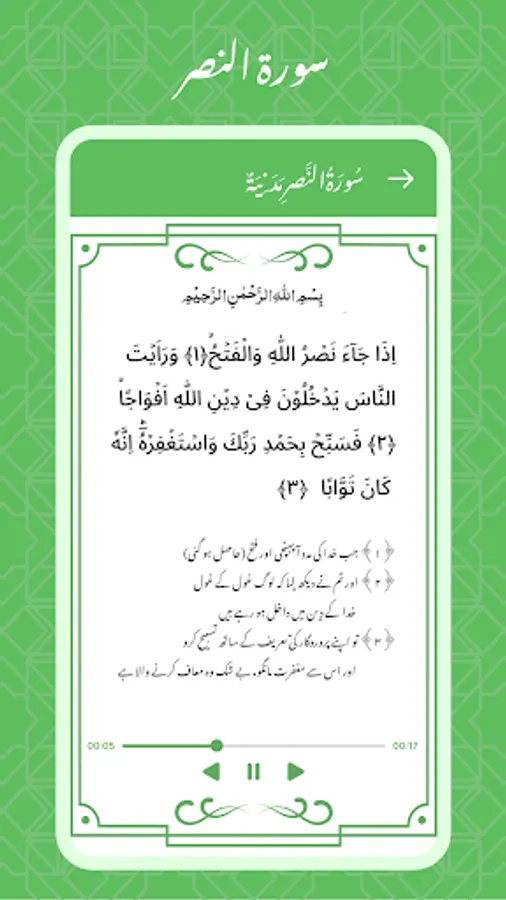 سورۃ النصر
سُورَةُ النَّصرِ مَدَنِيَّةٌ
بِسْمِ اللهِ الرَّحْمٰنِ الرَّحِيْمِ
اِذَا جَآءَ نَصْرُ اللّٰهِ وَالْفَتْحُۙ‏﴿۱﴾ وَرَاَيْتَ
النَّاسَ يَدْخُلُوْنَ فِىْ دِيْنِ اللّٰهِ اَفْوَاجًاۙ‏
﴿۲﴾ فَسَبِّحْ بِحَمْدِ رَبِّكَ وَاسْتَغْفِرْهُؔؕ اِنَّهٗ
كَانَ تَوَّابًا ﴿۳﴾
﴿۱﴾ جب خدا کی مدد آ پہنچی اور فتح (حاصل ہو گئی)
﴿۲﴾ اور تم نے دیکھ لیا کہ لوگ غول کے غول
خدا کے دین میں داخل ہو رہے ہیں
﴿۳﴾ تو اپنے پروردگار کی تعریف کے ساتھ تسبیح کرو
اور اس سے مغفرت مانگو، بے شک وہ معاف کرنے والا ہے
00:05 00:17